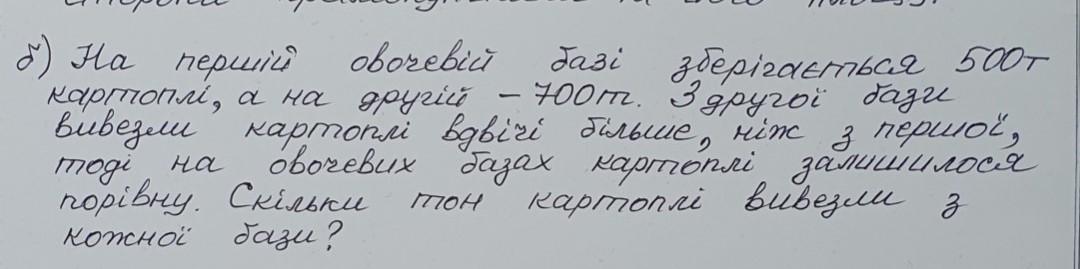 б) На першій овочевій базі зберігається 500т
картоплі, а на другій – 700т. З другої бази
вивезли картоплі вдвічі більше, ніж з першої,
тоді на овочевих базах картоплі залишилося
порівну. Скільки тон картоплі вивезли з
кожної бази?